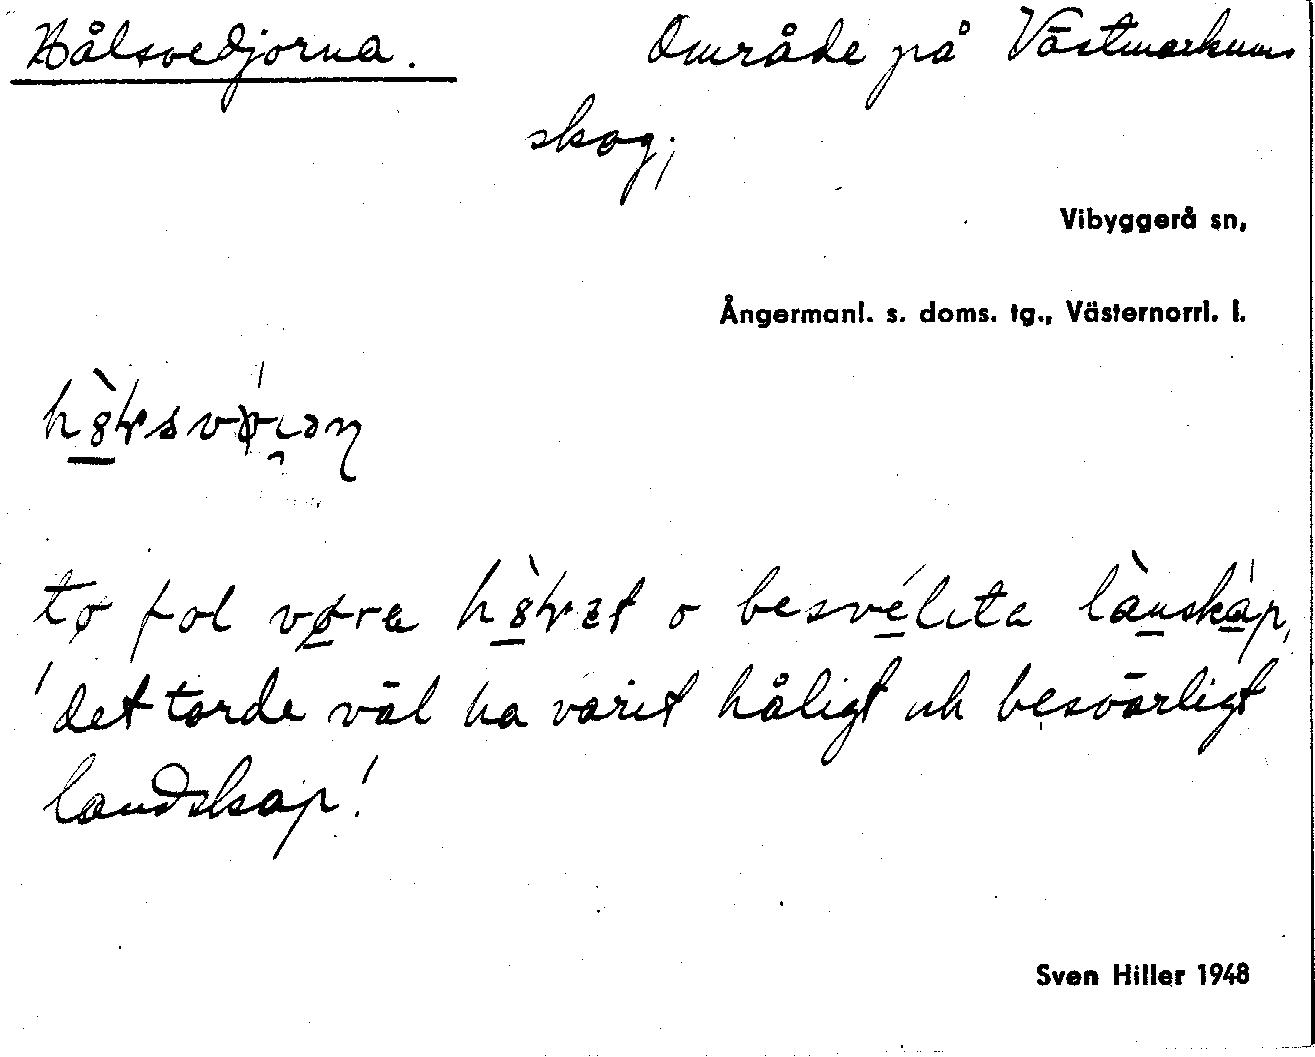 Hålsvedjorna. Område på Västmarkums
skog;
Vibyggerå sn,
Ångermanl. s. doms. tg., Västernorrl. l.
besvélita lànskàp,
'det torde väl ha varit håligt och besvärligt
landskap'
Sven Hiller 1948